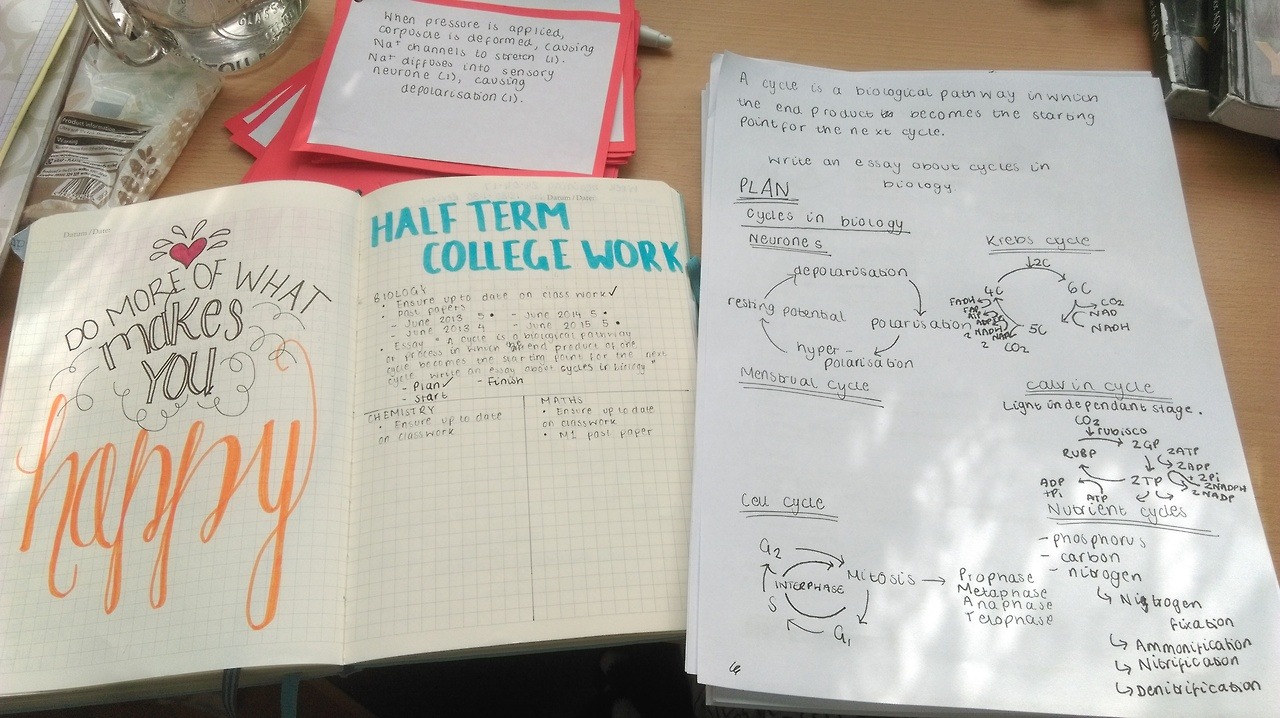 GLASS
YOU
Product information
Warning
When pressure is applied,
corpuscle is deformed, causing
Na+ channels to stretch (1).
Na+ diffuses into sensory
neurone (1), causing
depolarisation (1).
Datum / Date:
DO MORE OF WHAT
makes
YOU
happy
Datum / Date:
HALF TERM
COLLEGE WORK
BIOLOGY
• Ensure up to date on class work ✓
• Past papers
- June 2013 5 • - June 2014 5 •
- June 2013 4 - June 2015 5 •
• Essay "A cycle is a biological pathway
or process in which end product of one
cycle becomes the starting point for the next
cycle. Write an essay about cycles in biology"
- Plan ✓ - Finish
- Start
CHEMISTRY
• Ensure up to date
on classwork
MATHS
• Ensure up to date
on classwork
• M1 past paper
A cycle is a biological pathway in which
the end product becomes the starting
point for the next cycle.
Write an essay about cycles in
biology
PLAN
Cycles in biology
Neurones
depolarisation
resting potential
polarisation
hyper-
polarisation
Krebs cycle
2C
4C
6C
CO2
NAD
NADH
5C
CO2
FADH
FAD
ATP
ADP
2 NADH
2 NAD
Menstrual cycle
Calvin cycle
Light independant stage.
CO2
rubisco
2GP
RUBP
2ATP
2ADP
+2Pi
2NADPH
2NADP
2TP
ADP
+Pi
ATP
Cell cycle
G2
INTERPHASE
Mitosis → Prophase
Metaphase
Anaphase
Telophase
S
G1
Nutrient cycles
- phosphorus
- carbon
- nitrogen
↳ Nitrogen
fixation
↳ Ammonification
↳ Nitrification
↳ Denitrification